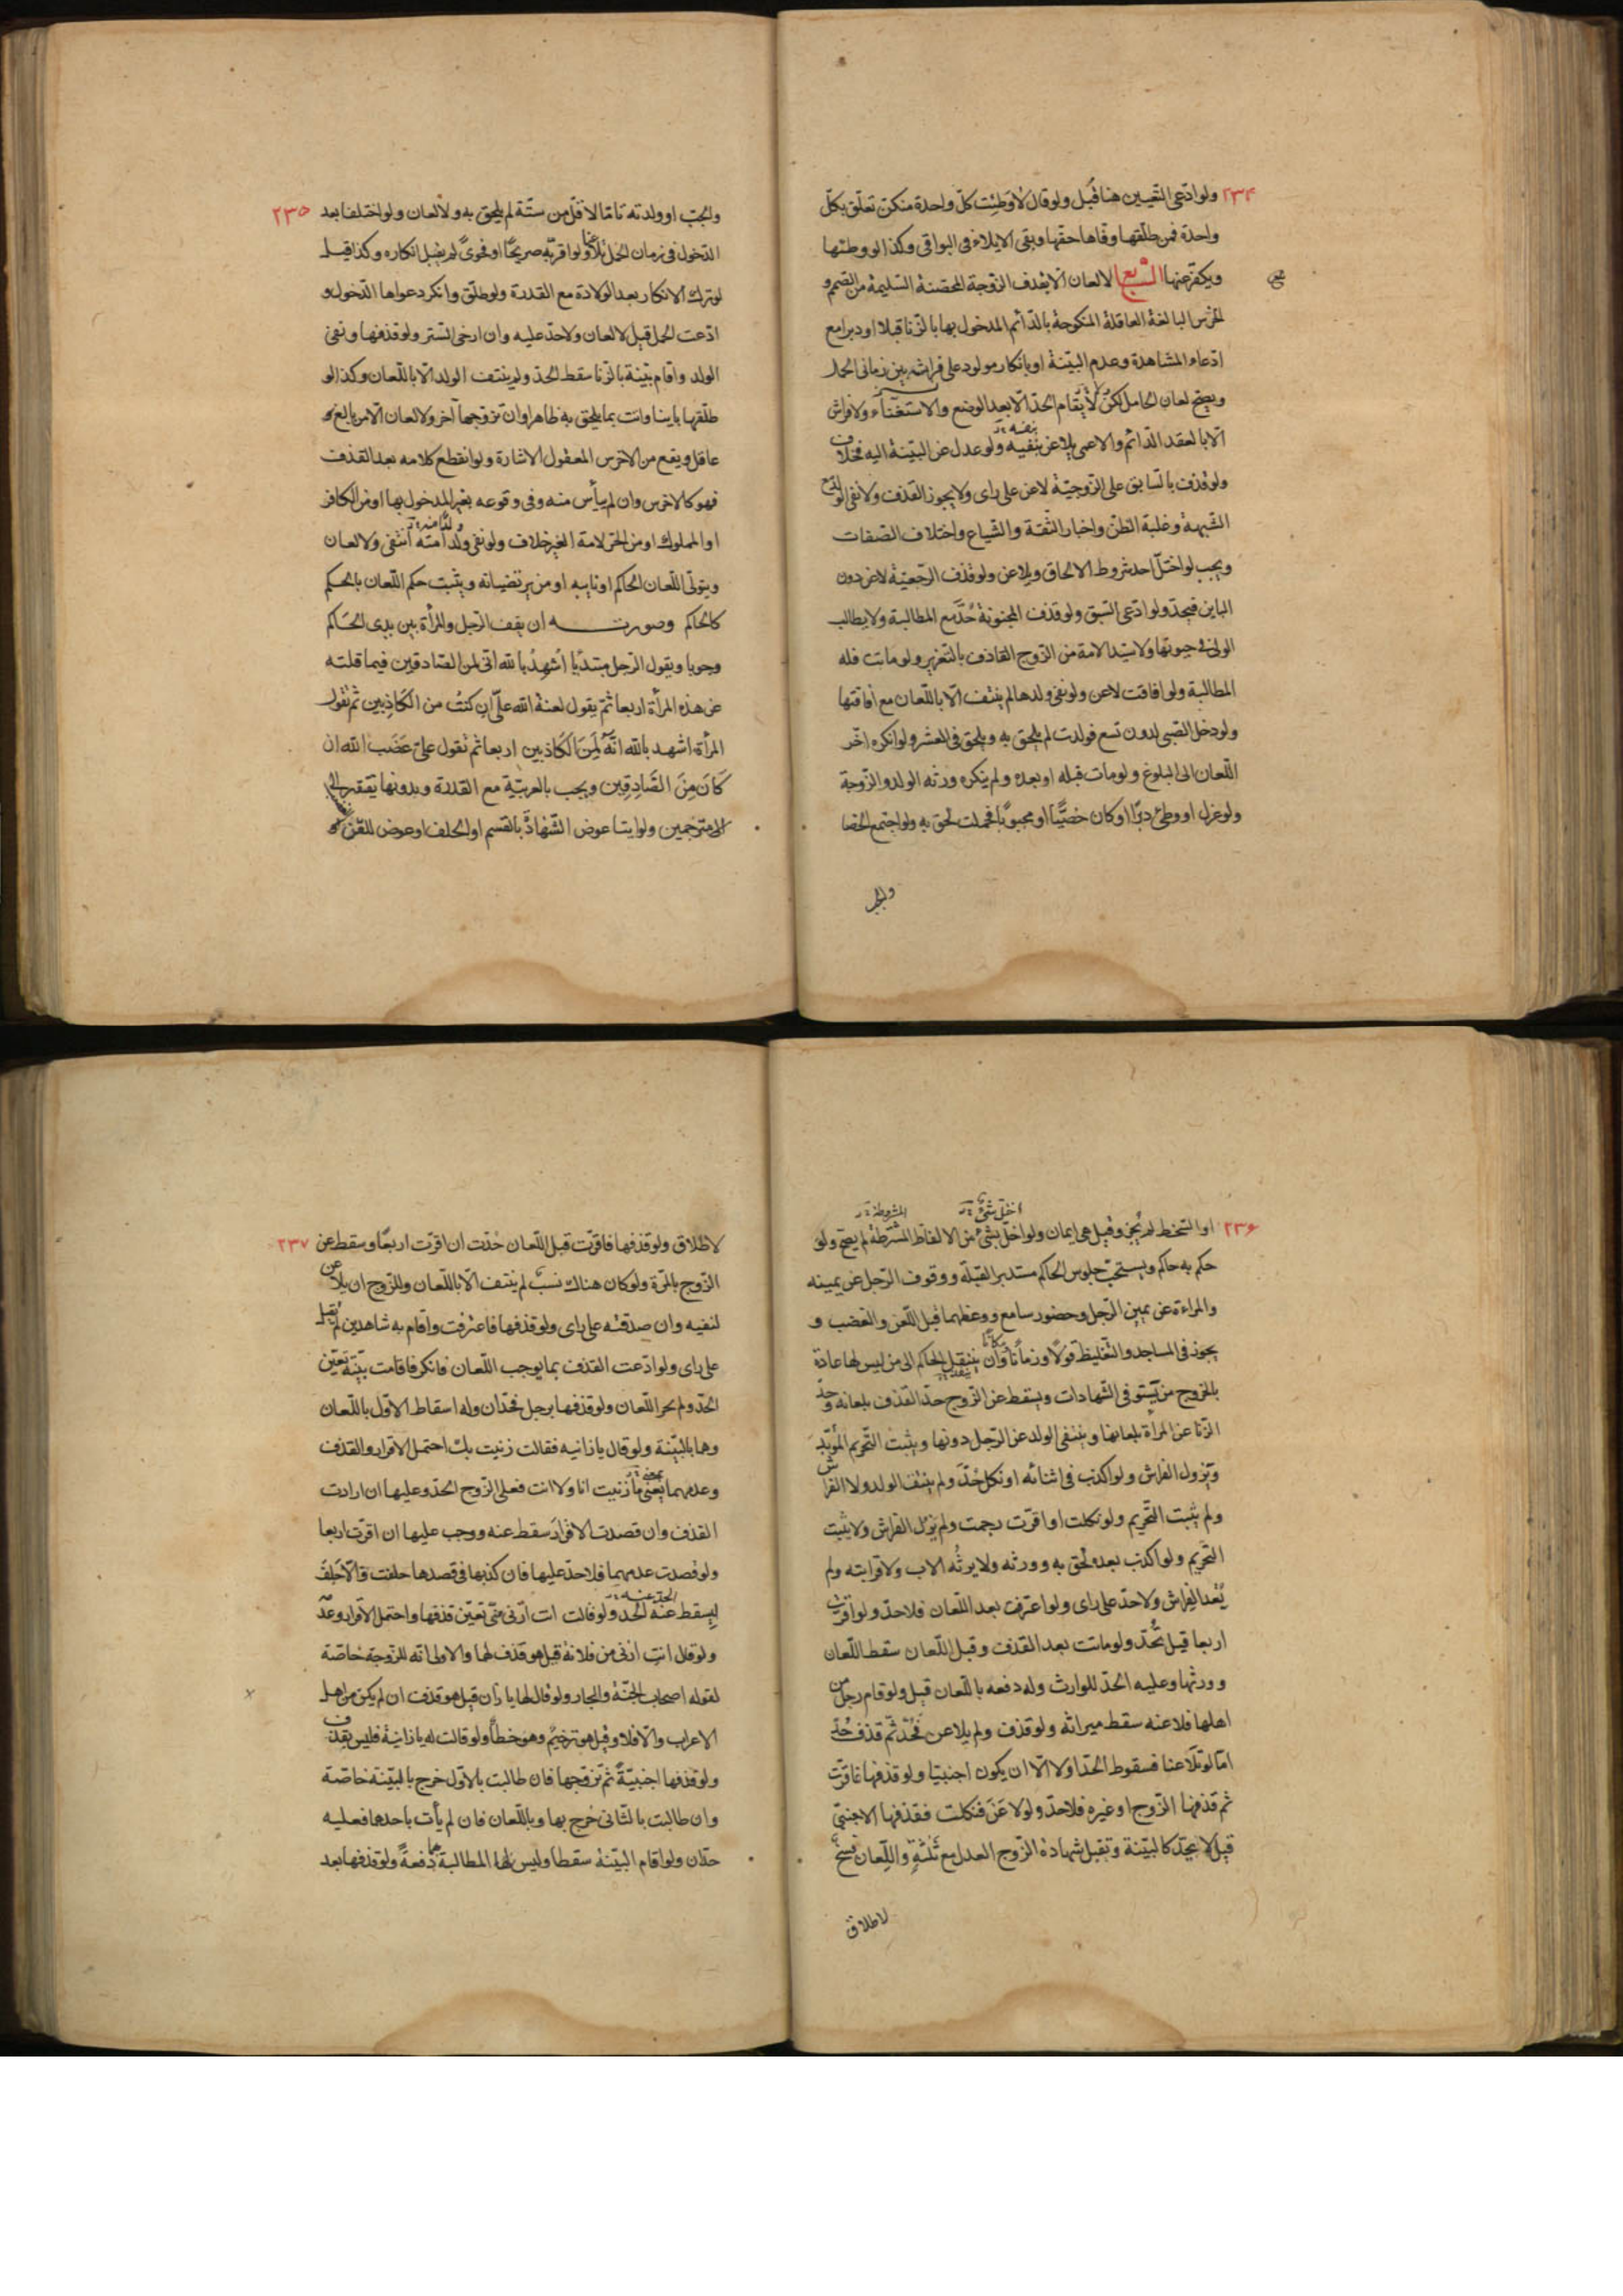 ٢٣٤ ولو ادّعى التّعيين هنا قُبل ولو قال لا وَطِئت كلّ واحدة منكنّ تعلّق بكلّ
واحدة فمن طلّقها وفّاها حقّها وبقى الايلاء فى البواقى وكذا لو وطئها
ويكفّر عنها السّابع لا لعان الّا بقذف الزّوجة المحصنة السّليمة من الصّمم و
الخرس البالغة العاقلة المنكوحة بالدّائم المدخول بها بالزّنا قبلا او دبرا مع
ادّعاء المشاهدة وعدم البيّنة او بانكار مولود على فراشه بين زمانى الحمل
ويصحّ لعان الحامل لكن لا يُقام الحدّ الّا بعد الوضع والاستغناء ولا فراش
الّا بالعقد الدّائم والاعمى يلاعن بنفيه ولو عدل عن البيّنة اليه فخلاف
ولو قذف بالسّابق على الزّوجيّة لاعن على راى ولا يجوز القذف ولا نفى الولد مع
الشّبهة وغلبة الظنّ واخبار الثّقة والشّياع واختلاف الصّفات
ويجب لو اختلّ احد شروط الالحاق ويلاعن ولو قذف الرّجعيّة لاعن دون
الباين فيحدّ ولو ادّعى السّبق ولو قذف المجنونة حُدّ مع المطالبة ولا يطالب
الولىّ فى حيوتها ولا سيّد الامة من الزّوج القاذف بالتّعزير ولو ماتت فله
المطالبة ولو افاقت لاعن ولو نفى ولدها لم ينتف الّا باللّعان مع افاقتها
ولو دخل الصّبى لدون تسع فولدت لم يلحق به ويلحق فى العشر ولو انكره اخّر
اللّعان الى البلوغ ولو مات قبله او بعده ولم ينكره ورثه الولد والزّوجة
ولو عزل او وطئ دبرًا او كان خصيًّا او مجبوبًا فحملت لحق به ولو اجتمع الخصا
والجبّ
٢٣٥ والجبّ او ولدته تامّا لاقلّ من ستّة لم يلحق به ولا لعان ولو اختلفا بعد
الدّخول فى زمان الحمل تلاعنا ولو اقرّ به صريحًا او فحوىً لم يقبل انكاره وكذا قيل
لو ترك الانكار بعد الولادة مع القدرة ولو طلّق وانكر دعواها الدّخول و
ادّعت الحمل قيل لا لعان ولا حدّ عليه وان ارخى السّتر ولو قذفها ونفى
الولد واقام بيّنة بالزنا سقط الحدّ ولم ينتف الولد الّا باللّعان وكذا لو
طلّقها باينا واتت بما يلحق به ظاهرا وان تزوّجها آخر ولا لعان الّا من بالغ
عاقل ويقع من الاخرس المعقول الاشارة ولو انقطع كلامه بعد القذف
فهو كالاخرس وان لم ييأس منه وفى وقوعه بغير المدخول بها او من الكافر
او المملوك او من الحرّ لامة الغير خلاف ولو نفى ولد امته انتفى ولا لعان
ويتولّى اللّعان الحاكم او نايبه او من يرتضيانه ويثبت حكم اللّعان بالحكم
كالحاكم وصورته ان يقف الرّجل والمرأة بين يدى الحاكم
وجوبا ويقول الرّجل مبتدئًا اُشهِدُ بالله انّى لمن الصّادقين فيما قلته
عن هذه المرأة اربعا ثمّ يقول لعنة الله علىّ ان كنتُ من الكاذِبين ثمّ تقول
المرأة اشهد بالله انّهُ لَمِنَ الكَاذِبين اربعا ثمّ تقول علىّ غضَب الله ان
كَانَ مِنَ الصَّادِقِين ويجب بالعربيّة مع القدرة وبدونها يفتقر الحاكم
الى مترجمين ولو ابتا عوض الشّهادة بالقسم او الحلف او عوض اللّعن
٢٣٦ او السّخط لم يُجز وقيل هى ايمان ولو اخلّ بشئ من الالفاظ المشترطة لم يصحّ ولو
حكم به حاكم ويستحبّ جلوس الحاكم مستدبر القبلة ووقوف الرّجل عن يمينه
والمراءة عن يمين الرّجل وحضور سامع ووعظهما قبل اللّعن والغضب و
يجوز فى المساجد والتّغليظ قولًا وزمانًا ومكانًا وان ينتقل الحاكم الى من ليس لها عادة
بالخروج من يستوفى الشّهادات ويسقط عن الزّوج حدّ القذف بلعانه وحدّ
الزّنا عن المرأة بلعانها وينتفى الولد عن الرّجل دونها ويثبت التّحريم المؤبّد
ويزول الفراش ولو اكذب فى اثنائه او نكل حُدّ ولم ينتف الولد ولا الفراش
ولم يثبت التّحريم ولو نكلت او اقرّت رجمت ولم يزُل الفراش ولا يثبت
التّحريم ولو اكذب بعد لحق به وورثه ولا يرثُه الاب ولا قرابته ولم
يُعد الفِراش ولا حدّ على راى ولو اعترفت بعد اللّعان فلا حدّ ولو اقرّت
اربعا قيل تُحدّ ولو ماتت بعد القذف وقبل اللّعان سقط اللّعان
وورثها وعليه الحدّ للوارث وله دفعه باللّعان قيل ولو قام رجل من
اهلها فلاعنه سقط ميراثه ولو قذف ولم يلاعن فحُدّ ثمّ قذف حُدّ
امّا لو تلاعنا فسقوط الحدّ اولا الّا ان يكون اجنبيّا ولو قذفها فاقرّت
ثم قذفها الزّوج او غيره فلا حدّ ولو لاعَنَ فنكلت فقذفها الاجنبىّ
قيل لا يحدّ كالبيّنة وتقبل شهادة الزّوج العدل مع ثَلثةٍ واللِّعان فسخ
لا طلاق
٢٣٧ لا طلاق ولو قذفها فاقرّت قبل اللّعان حُدّت ان اقرّت اربعًا وسقط عن
الزّوج بالمرّة ولو كان هناك نسبٌ لم ينتف الّا باللّعان وللزّوج ان يلاعن
لنفيه وان صدقته على راى ولو قذفها فاعترفت واقام به شاهدين لم يُقبل
على راى ولو ادّعت القذف بما يوجب اللّعان فانكر فاقامت بيّنة تعيّن
الحدّ ولم يجز اللّعان ولو قذفها برجل فحدّان وله اسقاط الاوّل باللّعان
وهما بالبيّنة ولو قال يا زانيه فقالت زنيت بك احتمل الاقرار والقذف
وعدمهما بمعنى ما زنيت انا ولا انت فعلى الزّوج الحدّ وعليها ان ارادت
القذف وان قصدت الاقرار سقط عنه ووجب عليها ان اقرّت اربعا
ولو قصدت عدمهما فلا حدّ عليها فان كذبها فى قصدها حلفت والّا حَلِفَ
ليسقط عنه الحدّ ولو قالت انت ازنى منّى تعيّن قذفها واحتمل الاقرار وعدمه
ولو قال انتِ ازنى من فلانة قيل هو قذف لها والاولى انّه للزّوجة خاصّة
لقوله اصحاب الجنّة والنّار ولو قال لها يا زان قيل هو قذف ان لم يكن من اهل
الاعراب والّا فلا وقيل هو ترخيمٌ وهو خطأ ولو قالت له يا زانية فليس بقذف
ولو قذفها اجنبيّةً ثمّ تزوّجها فان طالبت بالاوّل خرج بالبيّنة خاصّة
وان طالبت بالثّانى خرج بها وباللّعان فان لم يأت باحدهما فعليه
حدّان ولو اقام البيّنة سقطا وليس لها المطالبة بهما دُفعةً ولو قذفها بعد